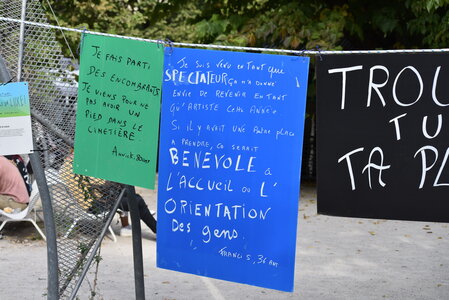 Je fais parti
des encombrants
Je viens pour ne
pas avoir un
pied dans le
cimetière.
Je suis venu en tant que
SPECTATEUR ça m'a donné
envie de revenir en tant
qu'artiste cette année
Si il y avait une autre place
à prendre, ce serait
BÉNÉVOLE à
L'ACCUEIL OU L'
ORIENTATION
Des gens.
FRANCIS, 36 ans
TROU
TU
TA PL